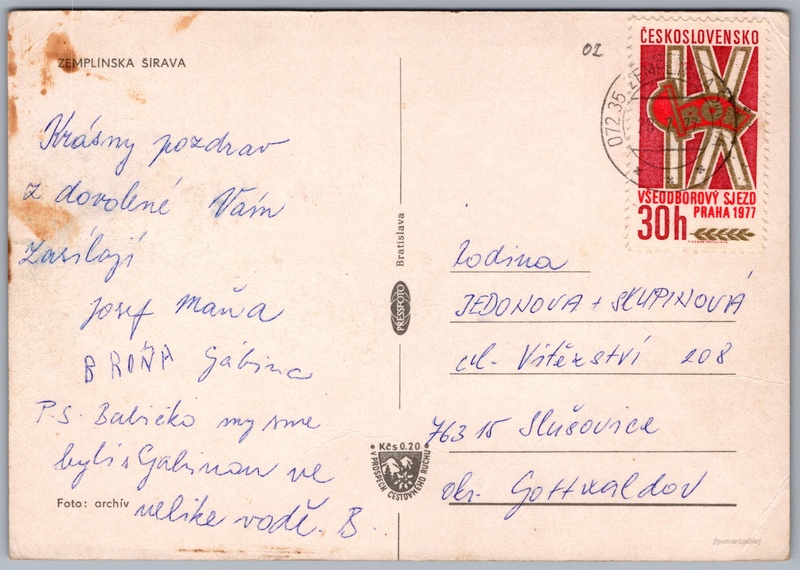 ZEMPLÍNSKA ŠÍRAVA
Krásny pozdrav
z dovolené Vám
zasílají
Josef Máňa
BROŇA Gábina
P.S. Babičko my sme
byli s Gábinou ve
velike vodě. B.
Foto: archív
Bratislava
PRESSFOTO
Kčs 0.20
V PROSPECH CESTOVNÉHO RUCHU
02
ČESKOSLOVENSKO
IX
VŠEODBOROVÝ SJEZD
PRAHA 1977
30h
072 35
Rodina
JEDONOVA + SKUPINOVÁ
ul. Vítězství 208
763 15 Slušovice
okr. Gottwaldov